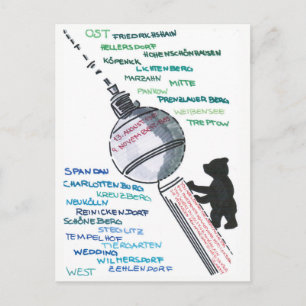 OST
FRIEDRICHSHAIN
HELLERSDORF
HOHENSCHÖNHAUSEN
KÖPENICK
LICHTENBERG
MARZAHN
MITTE
PANKOW
PRENZLAUER BERG
WEIßENSEE
TREPTOW
13. AUGUST
9. NOVEMBER
SPANDAU
CHARLOTTENBURG
KREUZBERG
NEUKÖLLN
REINICKENDORF
SCHÖNEBERG
STEGLITZ
TEMPELHOF
TIERGARTEN
WEDDING
WILMERSDORF
WEST
ZEHLENDORF